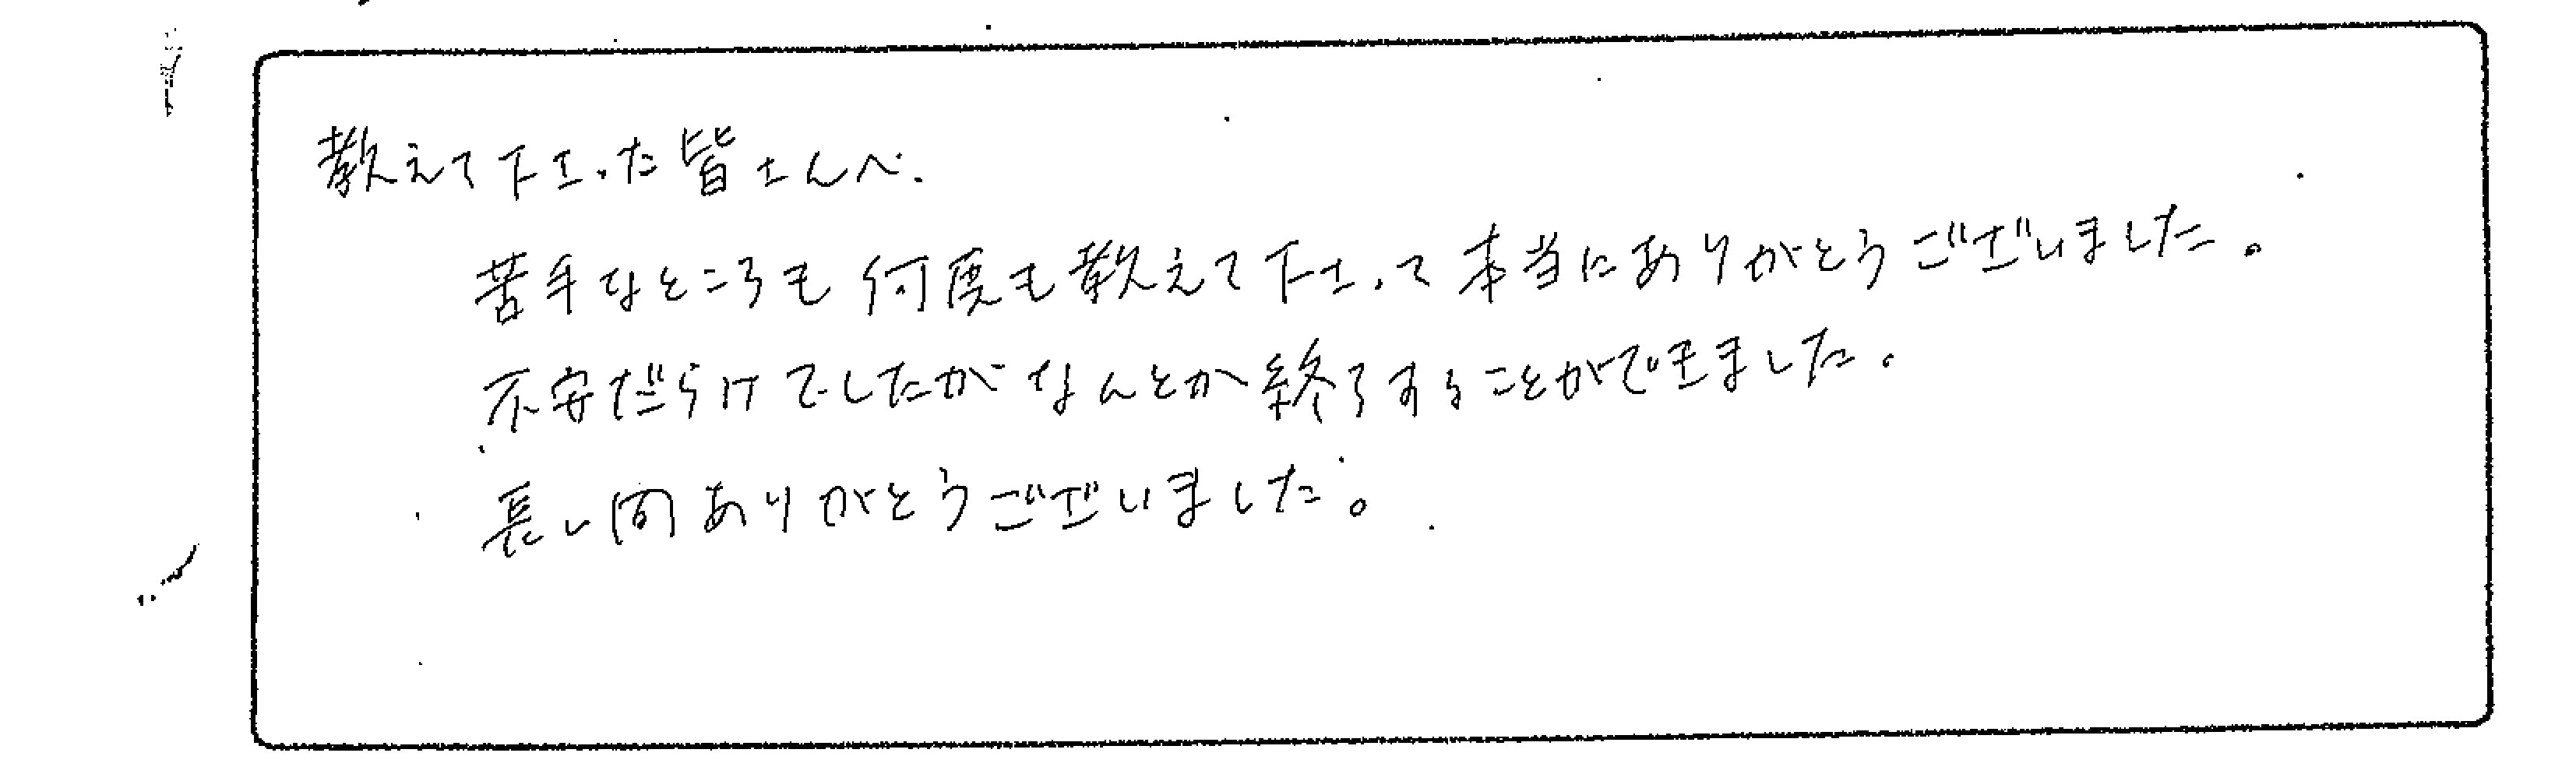 教えて下さった皆さんへ.
苦手なところも何度も教えて下さって本当にありがとうございました。
不安だらけでしたがなんとか終了することができました。
長い間ありがとうございました。